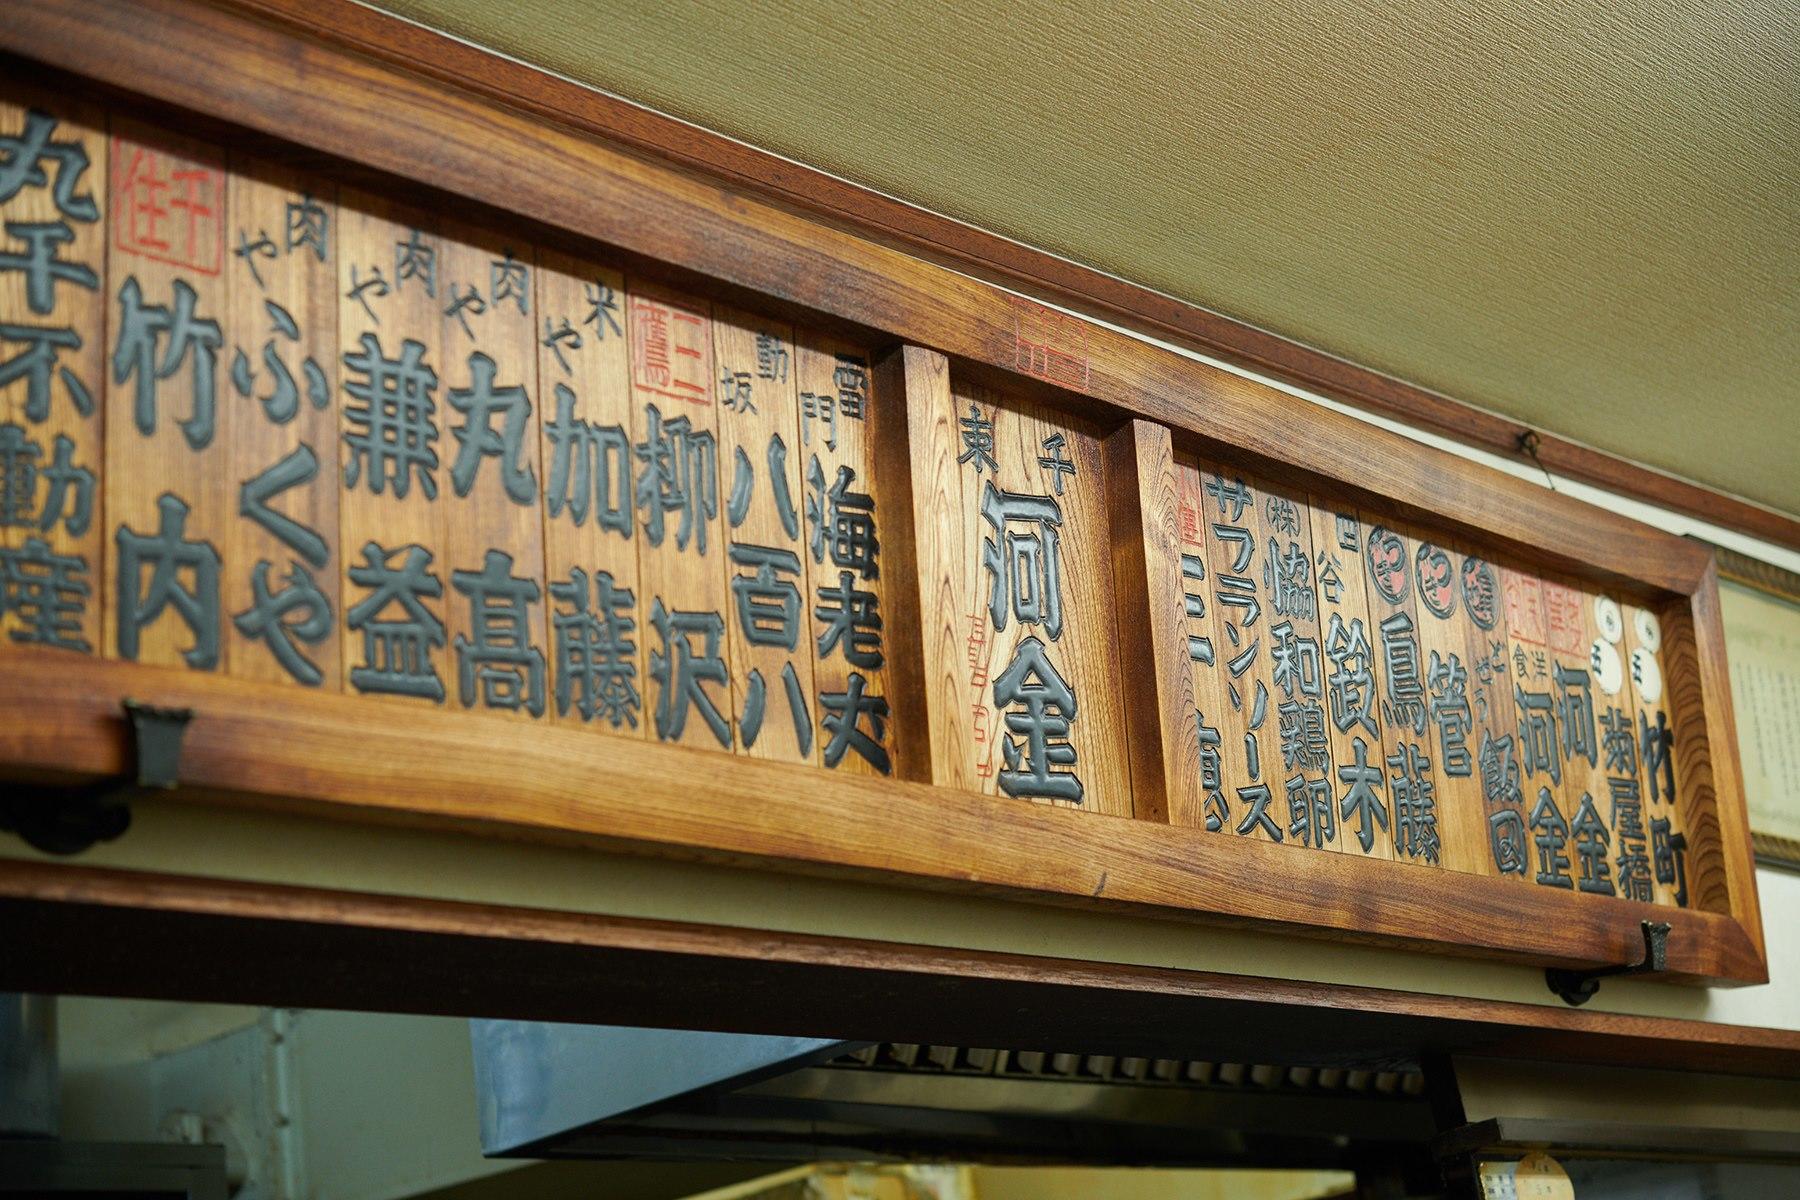 竹町
菊屋橋
河金
洋食 河金
どぜう 飯田
管
鳥藤
鈴木
(株)協和鶏卵
サフランソース
千束 河金
雷門 海老丈
動坂 八百八
三鷹 柳沢
米や 加藤
肉や 丸高
肉や 兼益
肉や ふくや
千住 竹内
丸千不動産